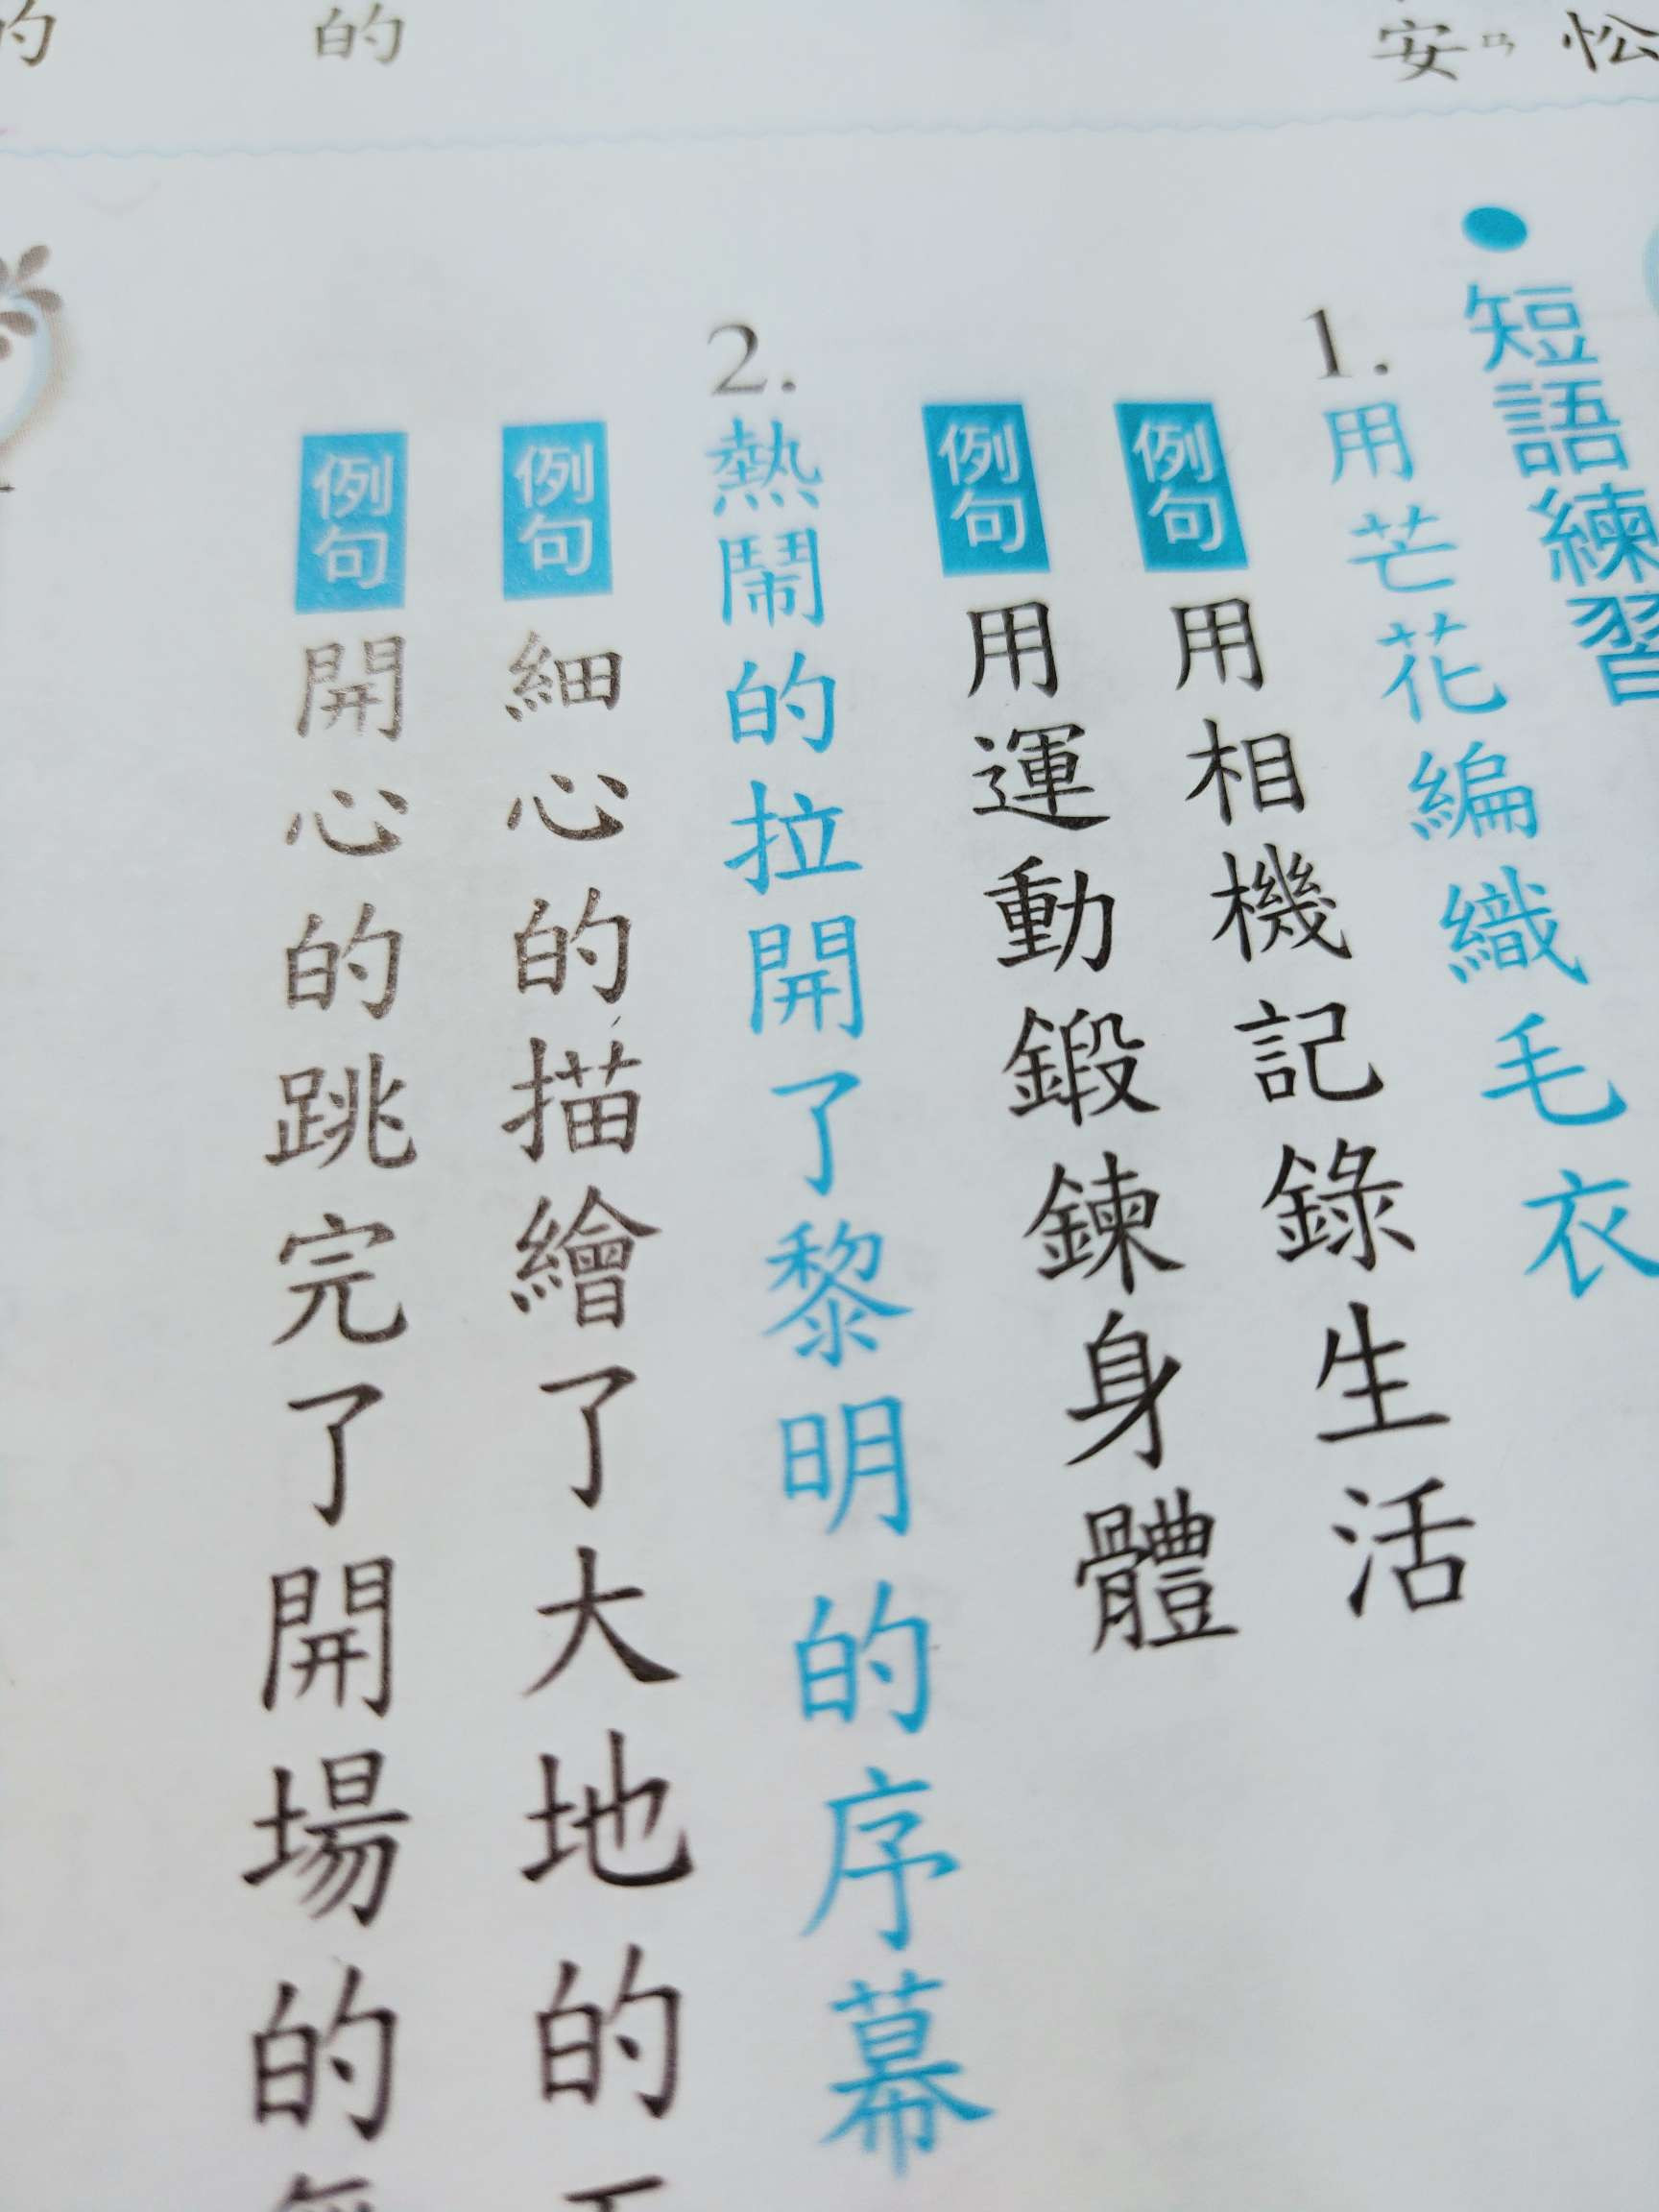 松
安
的
的
•短語練習
1.用芒花編織毛衣
例句 用相機記錄生活
例句 用運動鍛鍊身體
2.熱鬧的拉開了黎明的序幕
例句 細心的描繪了大地的
例句 開心的跳完了開場的